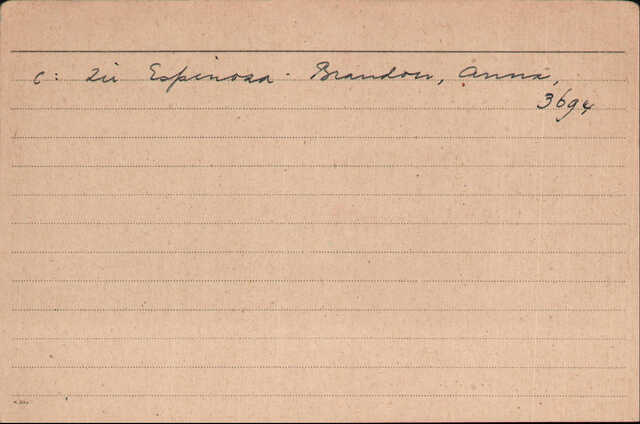 c: Zie Espinosa-Brandon, Anna,
3694